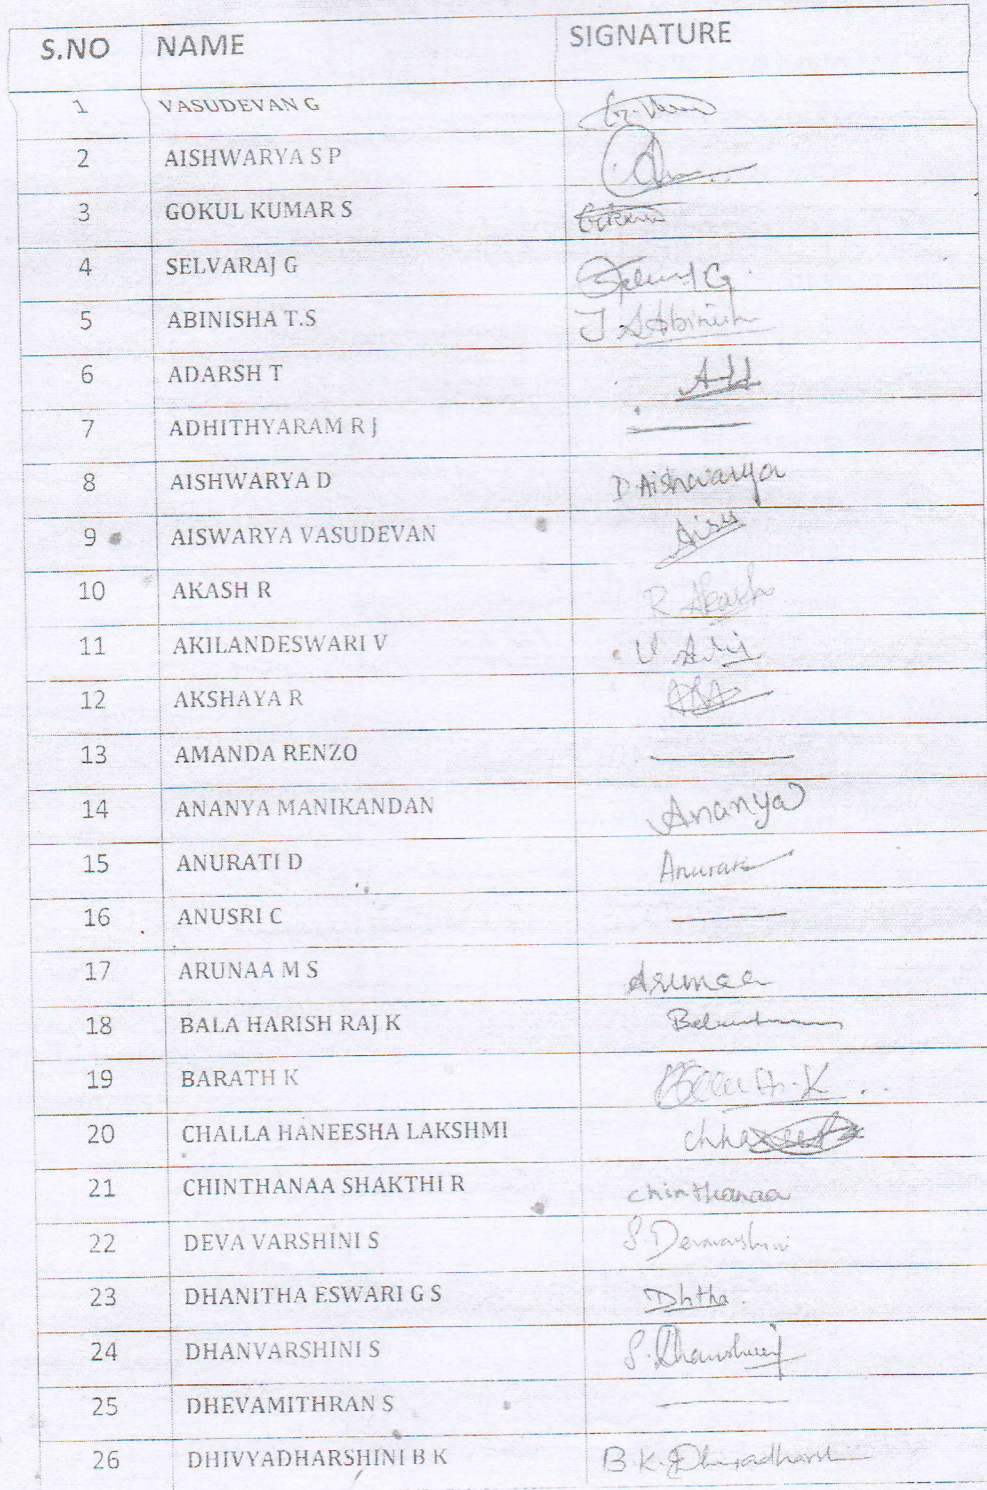 S.NO NAME SIGNATURE
1 VASUDEVAN G
2 AISHWARYA S P
3 GOKUL KUMAR S
4 SELVARAJ G
5 ABINISHA T.S
6 ADARSH T
7 ADHITHYARAM R J
8 AISHWARYA D D.Aishwarya
9 AISWARYA VASUDEVAN Aisu
10 AKASH R R Akash
11 AKILANDESWARI V
12 AKSHAYA R
13 AMANDA RENZO
14 ANANYA MANIKANDAN Ananya
15 ANURATI D
16 ANUSRI C
17 ARUNAA M S Arunaa
18 BALA HARISH RAJ K
19 BARATH K
20 CHALLA HANEESHA LAKSHMI
21 CHINTHANAA SHAKTHI R chinthanaa
22 DEVA VARSHINI S
23 DHANITHA ESWARI G S Dhtha.
24 DHANVARSHINI S
25 DHEVAMITHRAN S
26 DHIVYADHARSHINI B K